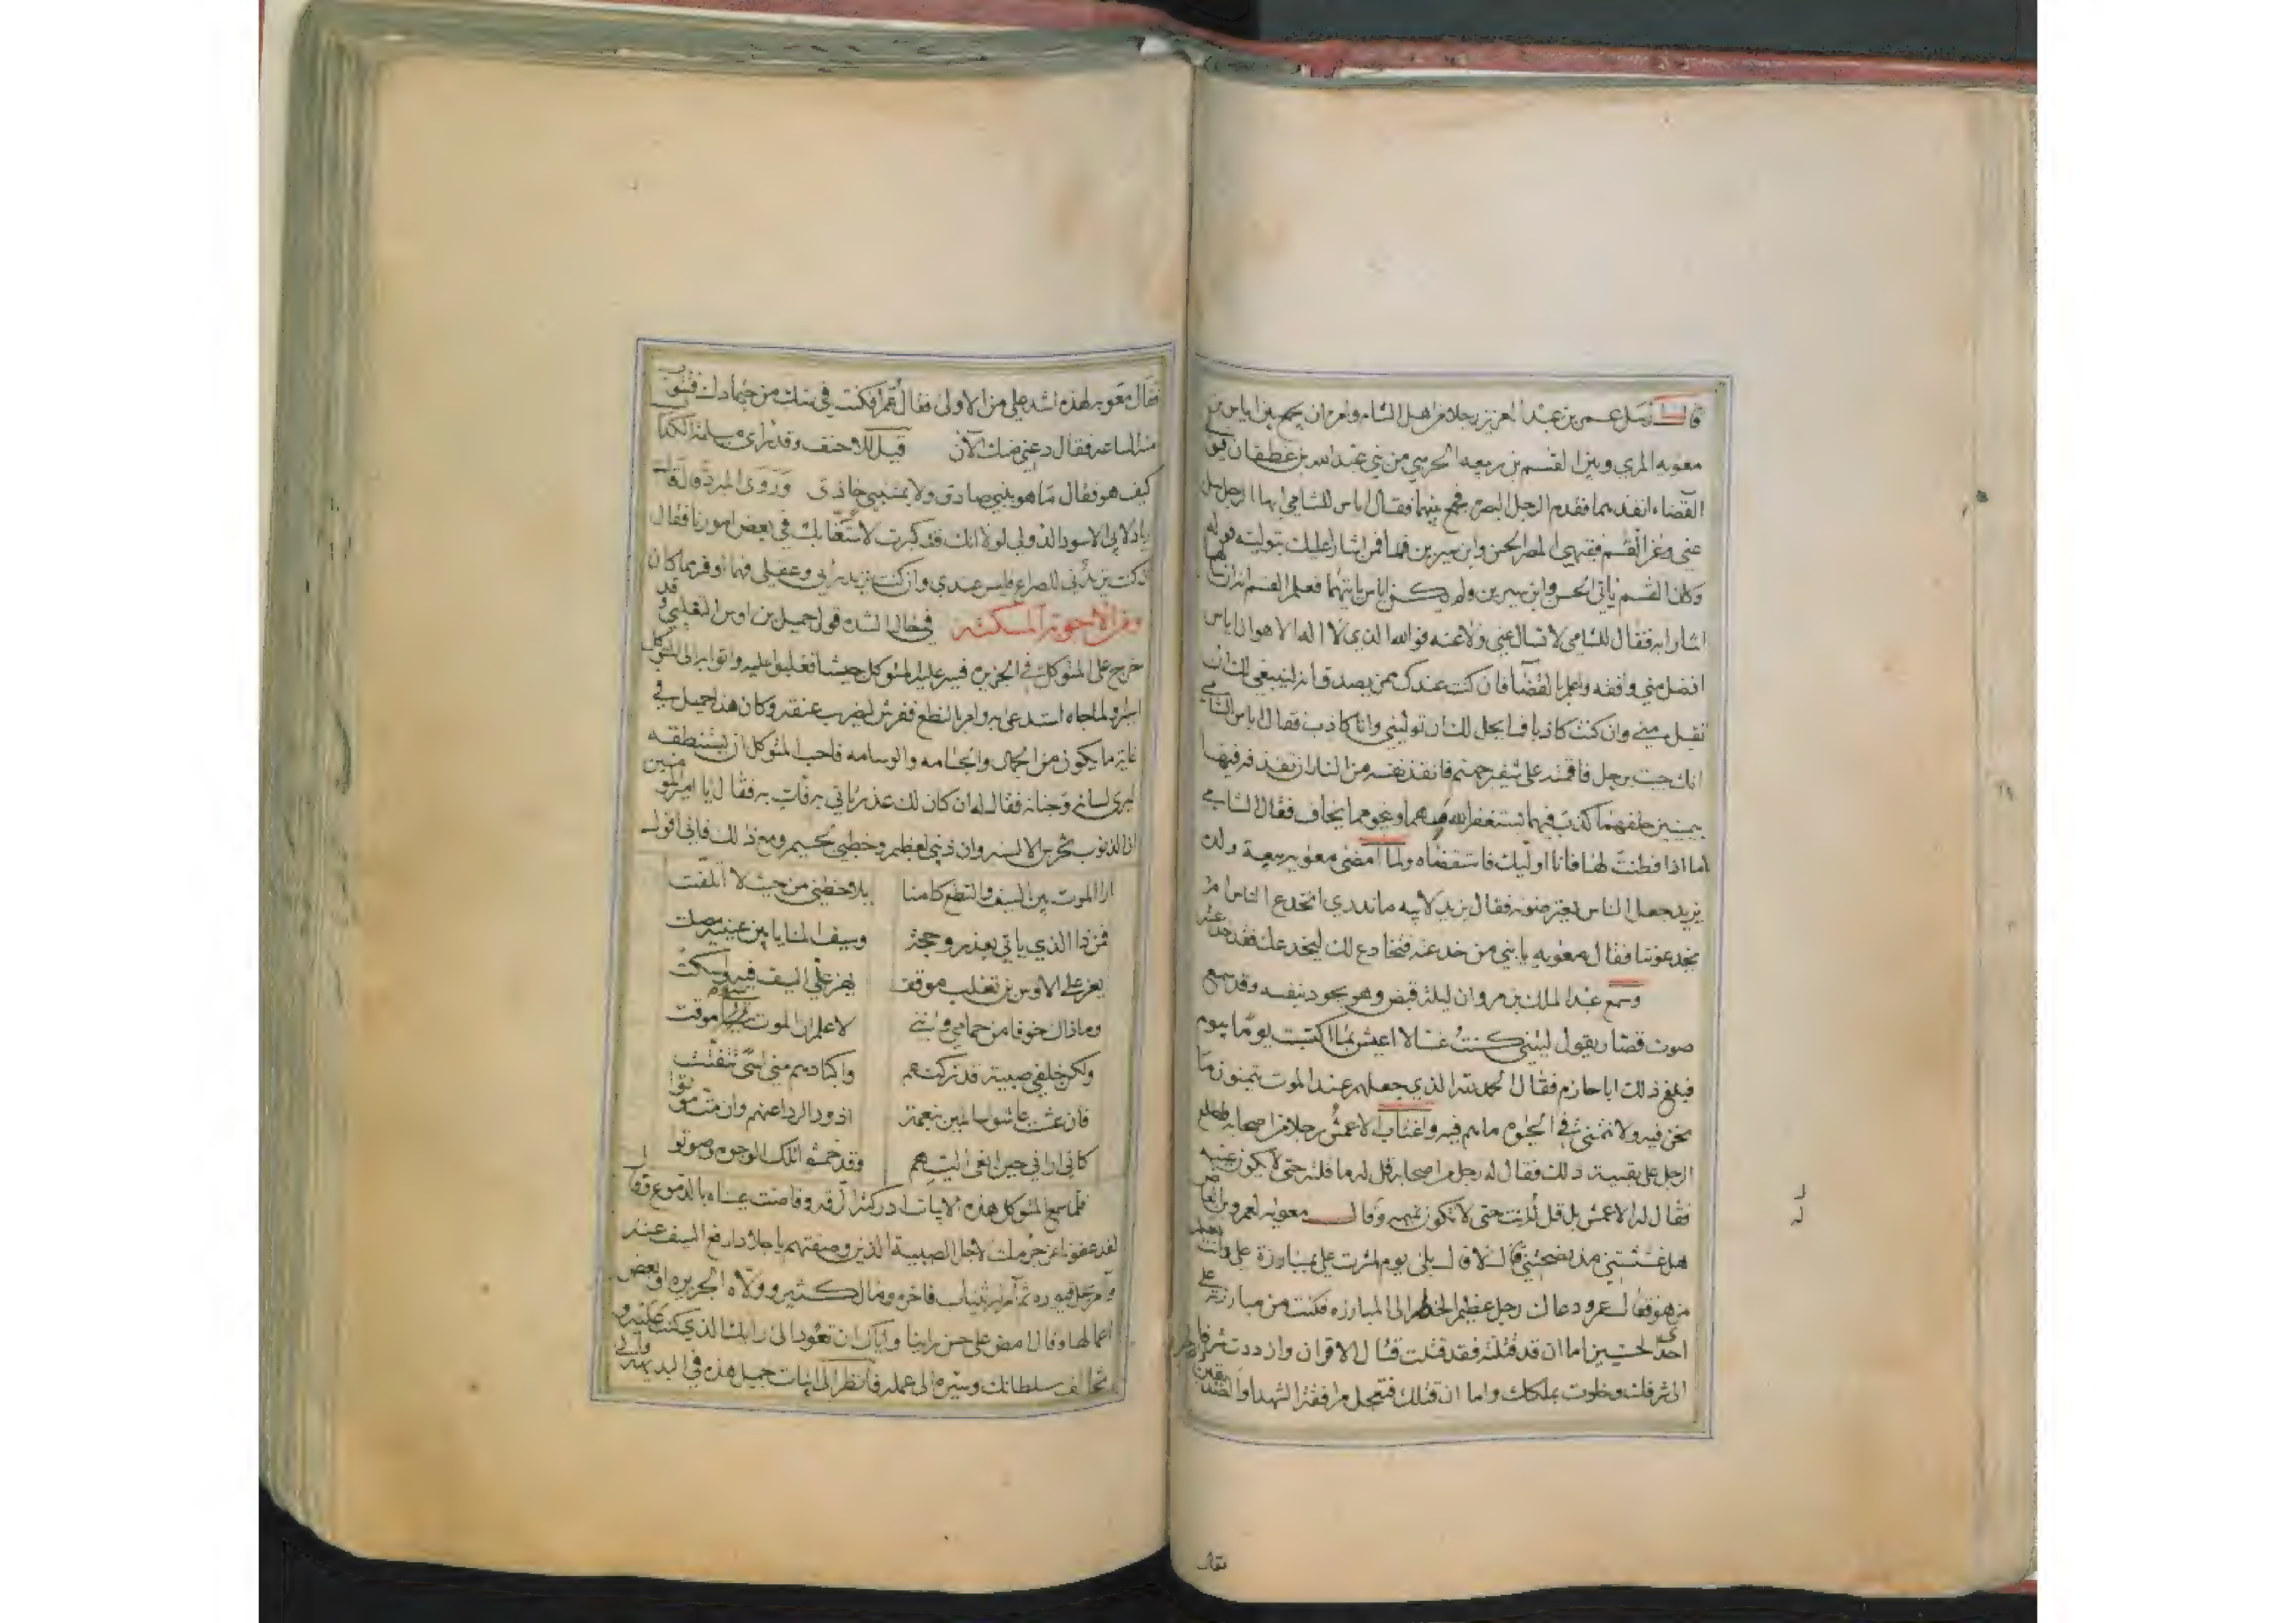 قال ارسل عمر بن عبد العزيز رجلا من اهل الشام وامره ان يجمع بين اياس بن
معويه المري وبين القسم بن ربيعه الحرسي من بني عبد الله بن غطفان فيولي
القضاء انفذهما فقدم الرجل البصرة فجمع بينهما فقال اياس للشامي ايها الرجل سل
عني وعن القسم فقيهي المصر الحسن وابن سيرين فمن اشارا عليك بتوليته فوله
وكان القسم ياتي الحسن وابن سيرين ولم يكن اياس ياتيهما فعلم القسم انه ان سالهما
اشارا به فقال للشامي لا تسال عني ولا عنه فوالله الذي لا اله الا هو ان اياس
افضل مني وافقه واعلم بالقضا فان كنت عندك ممن يصدق انه لينبغي لك ان
تقبل مني وان كنت كاذبا فما يحل لك ان توليني وانا كاذب فقال اياس للشامي
انك جيت برجل فاقمته على شفير جهنم فافتدى نفسه من النار ان تقذفه فيها
بيمين حلفها كذب فيها يستغفر الله منها وينجو مما يخاف فقال الشامي
اما اذا فطنت لها فانا اوليك فاستقضاه ولما امضى معويه بيعة ولده
يزيد جعل الناس يقرضونه فقال يزيد لابيه ما ندري انخدع الناس ام
يخدعوننا فقال معويه يا بني من خدعته فتخادع لك ليخدعك فقد خدعته
وسمع عبد الملك بن مروان ليلة قبض وهو يجود بنفسه وقد سمع
صوت قصار يقول ليتني كنت غسالا اعيش بما اكتسبت يوما بيوم
فبلغ ذلك ابا حازم فقال الحمد لله الذي جعلهم عند الموت يتمنون ما
نحن فيه ولا نتمنى في الحيوه ما هم فيه واغتاب الاعمش رجلا من اصحابه فطلع
الرجل على بقيية ذلك فقال له رجل من اصحابه قل له ما قلته حتى لا يكون غيبه
فقال له الاعمش بل قل له انت حتى لا تكون نميمه وقال معويه لعمرو بن العاص
هل غششتني مذ نصحتني قال لا قال بلى يوم اشرت علي بمبارزة علي وانت تعلم
من هو فقال عمرو دعاك رجل عظيم الخطر الى المبارزه فكنت من مبارزته على
احدى الحسنيين اما ان قد قتلته فقد قتلت قتال الاقران وازددت شرفا
الى شرفك وخلوت بملكك واما ان قتلك فتعجل مرافقة الشهدا والصديقين
فقال
فقال معويه لهذه اشد علي من الاولى فقال عمرو افكنت في شك من جهادك فتتوب
من الساعه فقال دعني منك الآن قيل للاحنف وقد راى مسيلمة الكذاب
كيف هو فقال ما هو بنبي صادق ولا بمتنبي حاذق وروى المبرد قال قال
زياد لابي الاسود الدولي لولا انك قد كبرت لاستعنا بك في بعض امورنا فقال
ان كنت تريدني للصراع فليس عندي وان كنت تريد رايي وعقلي فهما اوفر مما كان
ومن الاجوبه المسكته في حال الشده قول جميل بن اوس التغلبي وقد
خرج على المتوكل في الجزيره فسير عليه المتوكل جيشا فغلبوا عليه واتوا به الى المتوكل
اسيرا ولما جاه استدعى به وامر بالنطع ففرش ليضرب عنقه وكان هذا جميل في
غاية ما يكون من الجمال والجسامه والوسامه فاحب المتوكل ان يستنطقه
ليرى لسانه وجنانه فقال له ان كان لك عذر تاتي به فات به فقال يا امير المومنين
ان الذنوب تخرس الالسنه وان ذنبي لعظيم وخطبي لجسيم ومع ذلك فاني اقول
ارا الموت بين السيف والنطع كامنا يلاحظني من حيث لا اتلفت
فمن ذا الذي ياتي بعذر وحجة وسيف المنايا بين عينيه مصلت
يعز على الاوس بن تغلب موقف يهز علي السيف فيه واسكت
وما ذاك خوفا من حمامي وانني لاعلم ان الموت شي موقت
ولكن خلفي صبية قد تركتهم واكبادهم مني اسى تتفتت
فان عشت عاشوا سالمين بنعمة اذود الردا عنهم وان مت موتوا
كاني اراني حين انعى اليهم وقد خمشوا تلك الوجوه وصوتوا
فلما سمع المتوكل هذه الابيات ادركته الرقه وفاضت عيناه بالدموع وقال
لقد عفونا عن جرمك لاجل الصبية الذين وصفتهم يا جلاد ارفع السيف عنه
وامر بحل قيوده ثم امر له بثياب فاخره ومال كثير وولاه الجزيره او بعض
اعمالها وقال امض على حسن راينا واياك ان تعود الى رايك الذي كنت عليه و
تخالف سلطانك وسيره الى عمله فانظر الى ابيات جميل هذه في البديهه